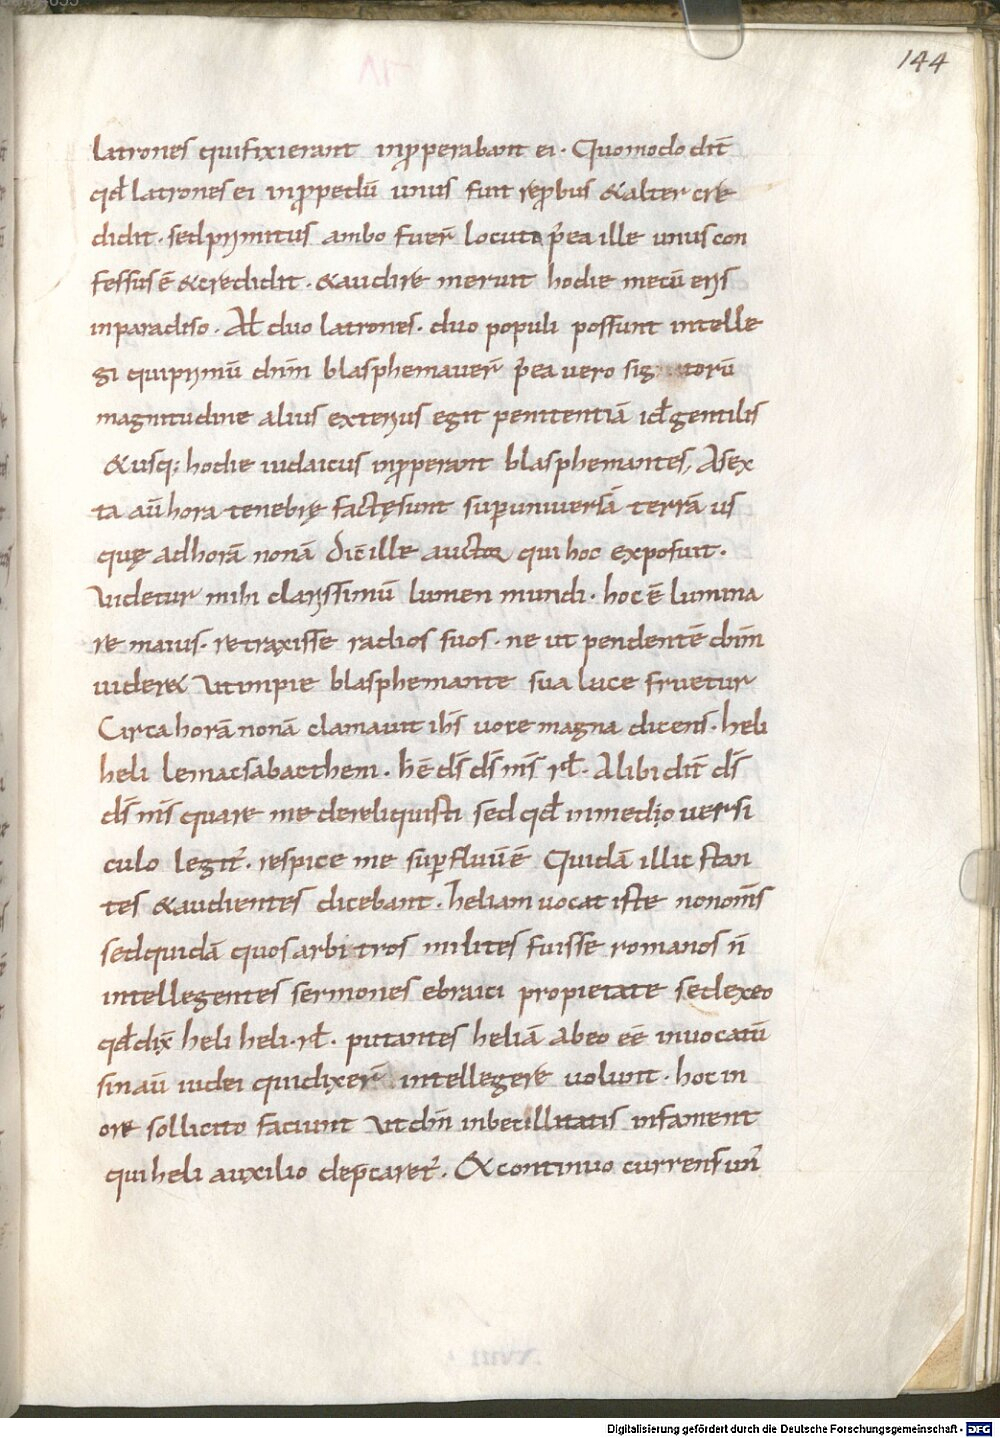 144
latrones qui fixierant inp̄perabant ei · Quomodo dic̄
qđ latrones ei inp̄pedū unus fuit rep̄bus & alter cre
didit · sed primitus ambo fuer̄ locuta p̄ea ille unus con
fessus ē & credidit · & audire meruit hodie mecū eris
in paradiso · Al duo latrones · duo populi possunt intelle
gi qui primū dn̄m blasphemauer̄ p̄ea uero sig torū
magnitudine alius exterius egit penitentiā id gentilis
& usq; hodie iudaicus inp̄perant blasphemantes, A sex
ta aū hora tenebrę factę sunt sup uniuersā terrā us
quę ad horā nonā Dic̄ ille auctor qui hoc exposuit ·
Videtur mihi clarissimū lumen mundi · hoc ē lumina
re maius · retraxisse radios suos · ne ut pendentē dn̄m
uider& ut impie blasphemante sua luce fruetur
Circa horā nonā clamauit ih̄s uoce magna dicens · heli
heli lemacsabacthem · h̄ ē ds̄ ds̄ m̄s rł · Alibi dic̄ ds̄
ds̄ m̄s quare me dereliquisti sed qđ in medio uersi
culo legit̄ · respice me sup fluū ē Quidā illic stan
tes & audientes dicebant · heliam uocat iste non om̄s
sed quidā quos arbitros milites fuisse romanos n̄
intellegentes sermones ebraici propietate sed ex eo
qđ dix̄ heli heli · rł · putantes heliā ab eo eē inuocatū
sin aū iudei qui dixer̄ intellegere uolunt · hoc in
ore sollicito faciunt ut dn̄ inbecillitatis infament
qui heli auxilio dep̄caret̄ · & continuo currens un̄
XVIII
Digitalisierung gefördert durch die Deutsche Forschungsgemeinschaft - DFG